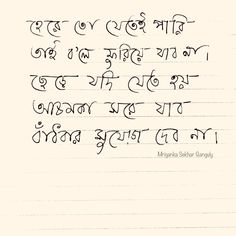 হেরে তো যেতেই পারি
তাই ব'লে ফুরিয়ে যাব না।
ছেড়ে যদি যেতে হয়
আচমকা সরে যাব
বাঁধিবার সুযোগ দেব না।
Mriganka Sekhar Ganguly